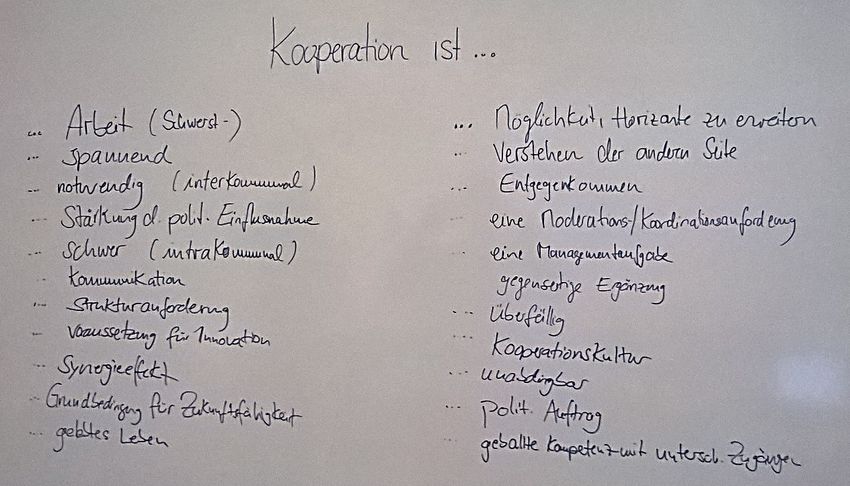 Kooperation ist ...
... Arbeit (Schwerst-)
... spannend
... notwendig (interkommunal)
... Stärkung d. polit. Einflusnahme
... schwer (intrakommunal)
... Kommunikation
... Strukturanforderung
... Voraussetzung für Innovation
... Synergieeffekt
... Grundbedingung für Zukunftsfähigkeit
... gelebtes Leben
... Möglichkeit, Horizonte zu erweitern
... Verstehen der andern Seite
... Entgegenkommen
... eine Moderations-/Koordinationsanforderung
... eine Managementaufgabe
gegenseitige Ergänzung
... Überfällig
... Kooperationskultur
... unabdingbar
... polit. Auftrag
... geballte Kompetenz mit untersch. Zugängen